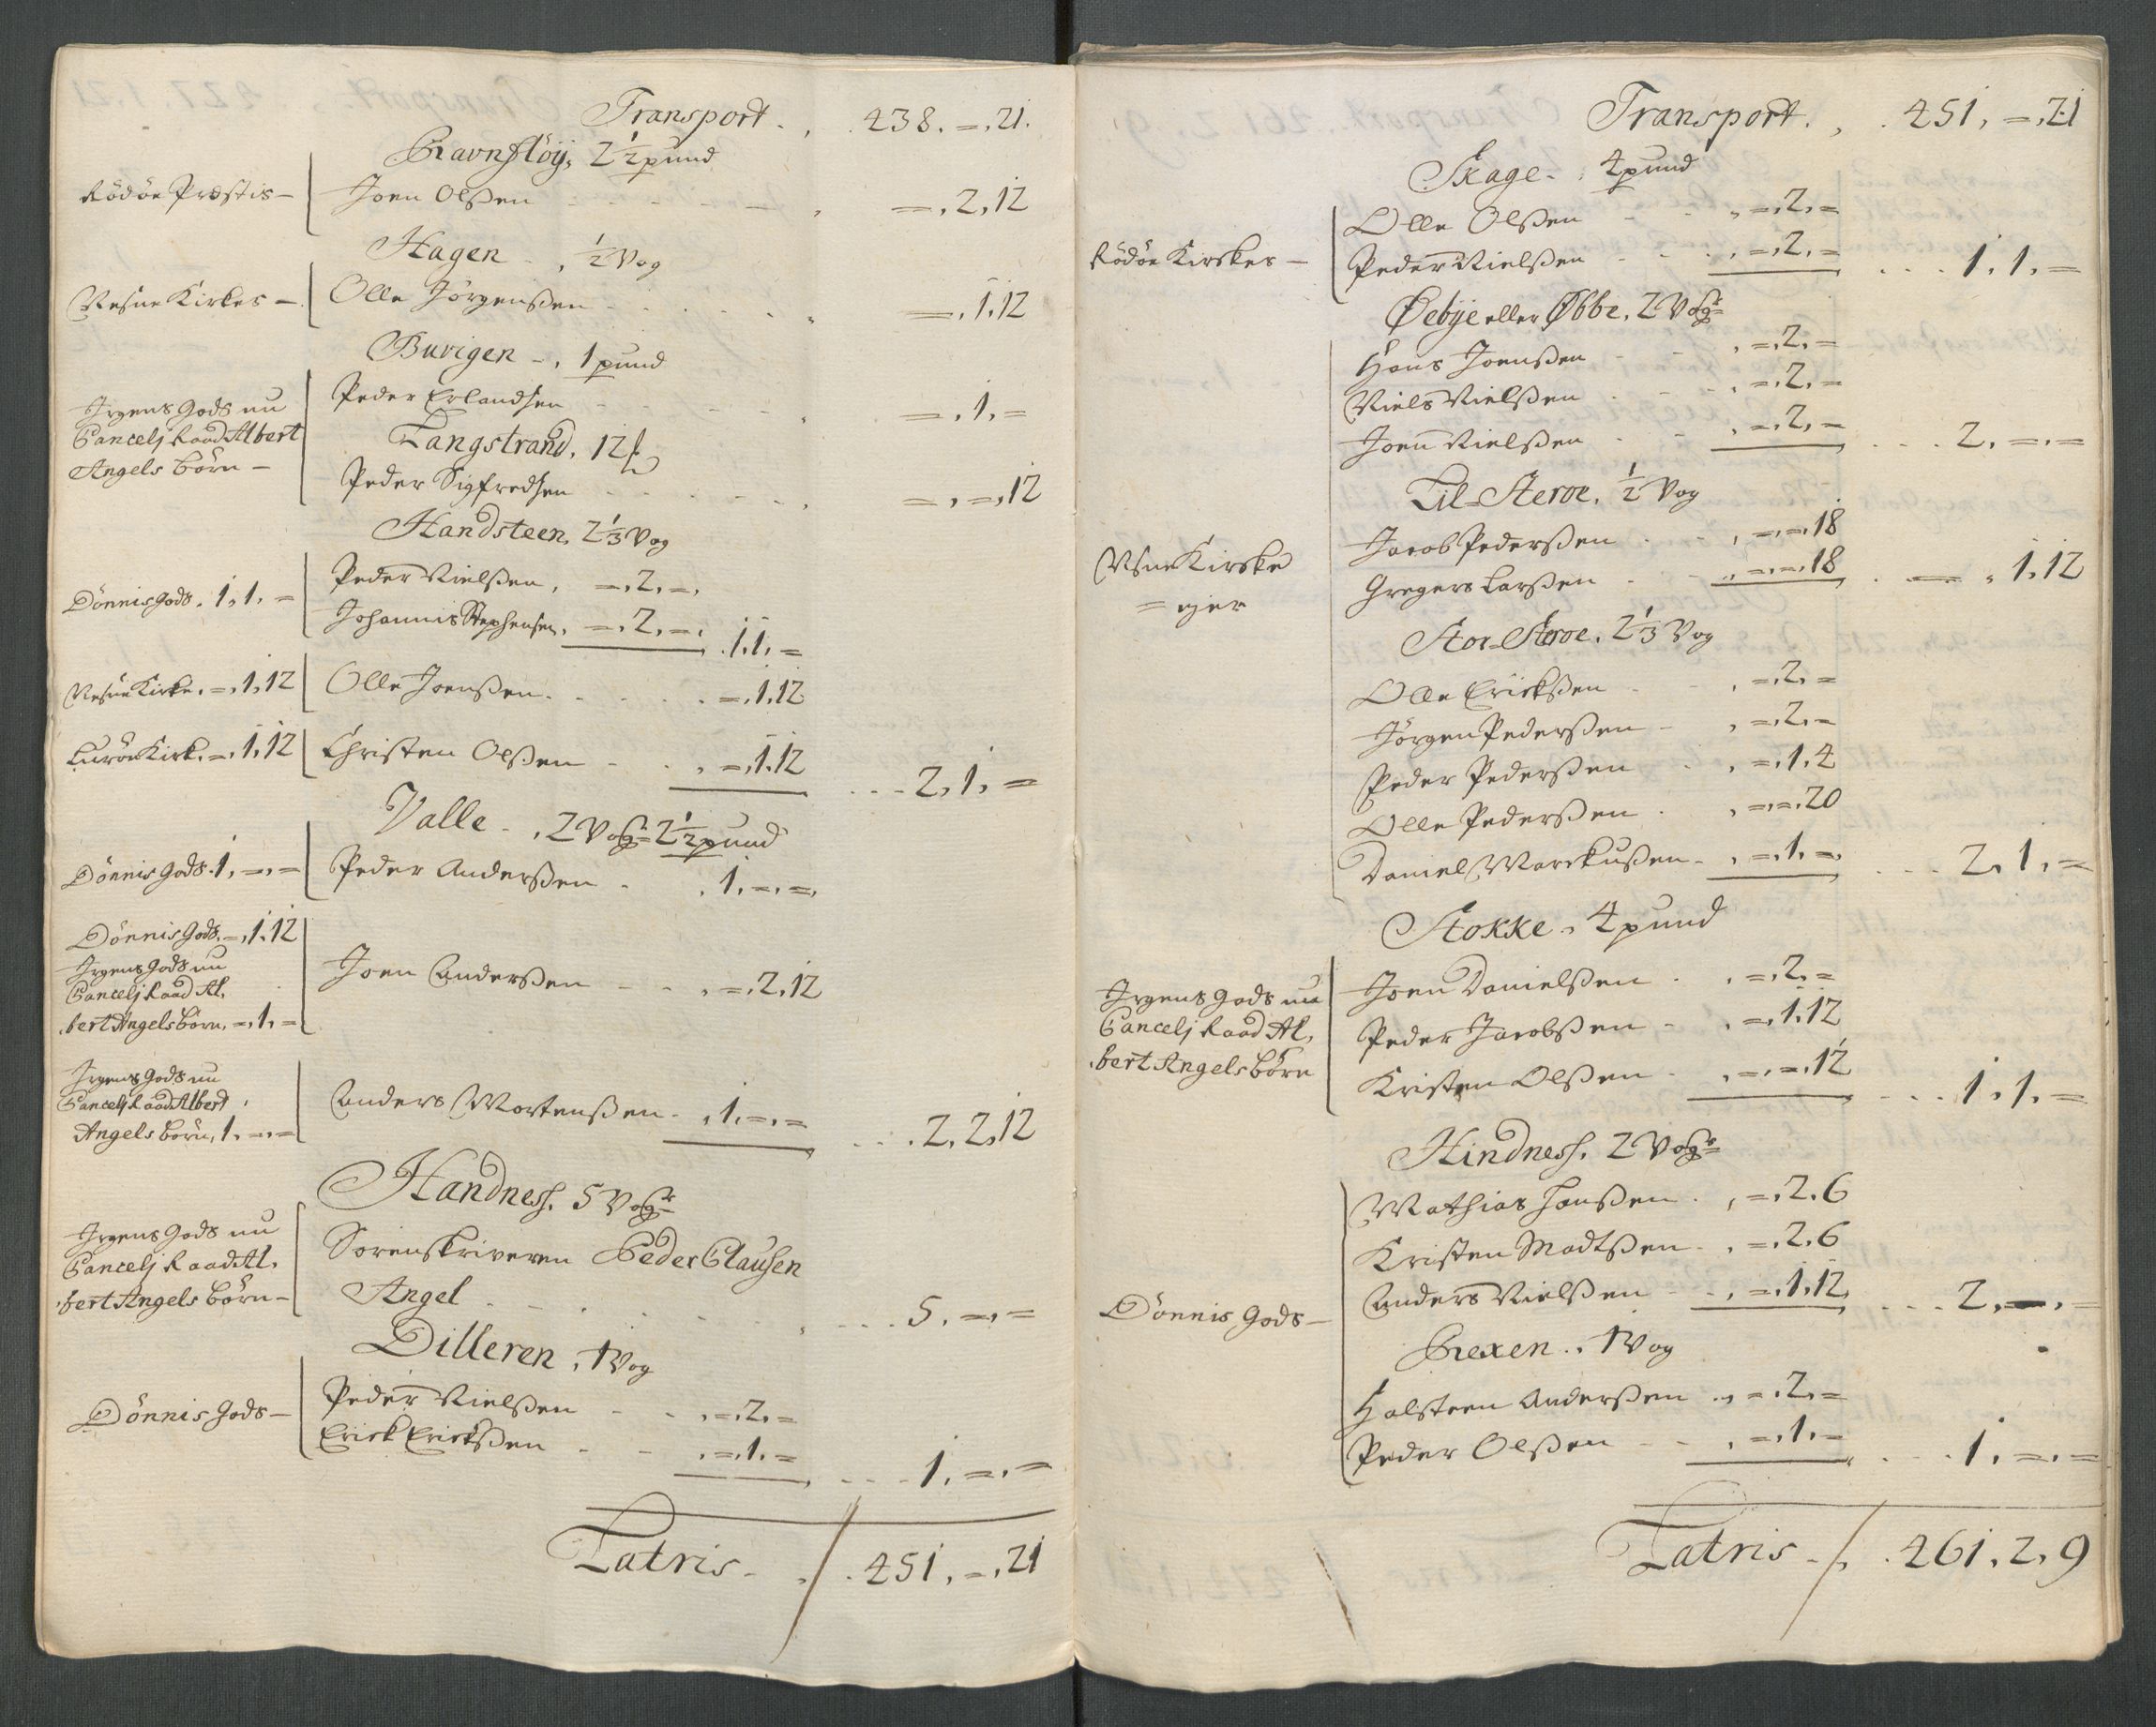 Transport . , . 438. = . 21.
Ravnfløÿ, 2 1/2 pund
Rödöe Præstis — Joen Olßen . . . =, 2, 12
Hagen - , 1/2 Vog
Nesne Kirkes — Olle Jörgenßen . . . =, 1. 12
Burigen - , 1 pund
Irgens Gods nu
Cancelj Raad Albert
Angels Börn —
Peder Erlandsen . . . =, 1, =
Langstrand, 12 ℔
Peder Sigfredsen . . . =, =, 12
Handsteen, 2 1/3 Vog
Dönnis Gods . 1, 1, = Peder Nielßen , =, 2, =,
Johannis Stephensen, =, 2, =, . 1, 1, =
Nesne Kirke, =, 1, 12 Olle Joenßen . . . =, 1, 12
Luröe Kirk, =, 1, 12 Christen Olßen . . , =, 1, 12 . . . 2, 1, =
Valle - , 2 Voger 2 1/2 pund
Dönnis Gods . 1, =, = Peder Anderßen . . 1, =, =,
Dönnis Gods, =, 1. 12
Irgens Gods nu
Cancelj Raad Al,
bert Angels Börn, =, 1, =
Joen Anderßen - - , =, 2, 12
Irgens Gods nu
Cancelj Raad Albert
Angels Börn, 1, =, =
Anders Mortenßen - , 1, =, = . . . 2, 2, 12
Handness, 5 Voger
Irgens Gods nu
Cancelj Raad Al,
bert Angels Börn —
Sorenskriveren Peder Clausen
Angel . . . 5, =, =
Dilleren , 1 Vog
Dönnis Gods — Peder Nielßen - - , =, 2, =
Erick Erickßen - - , =, 1, = . . . 1, =, =
Latris - , . 451, =, 21
Transport . , . 451, =, 21
Skage - , 4 pund
Rödöe Kirckes — Olle Olßen - - , =, 2, =
Peder Nielßen . . , =, 2, = . . . 1, 1, =
Øebÿe eller Øbbe, 2 Voger
Hans Joenßen - - , =, 2, =
Niels Nielßen . . , =, 2, =
Joen Nielßen . . , =, 2, = . . . 2, =, =
Lil-Steroe, 1/2 Vog
Nesne Kircke
= ejer
Jacob Pederßen . - , =, =, 18
Gregers Larßen - - , =, =, 18 . = , 1, 12
Stor-Steroe, 2 1/3 Vog
Olle Erickßen - - , =, 2, =
Jörgen Pederßen - , =, 2, =
Peder Pederßen . , =, 1, 4
Olle Pederßen . , =, =, 20
Daniel Marckußen - , =, 1, =, . . . 2, 1, =
Stokke - , 4 pund
Irgens Gods nu
Cancelj Raad Al,
bert Angels Börn
Joen Danielßen . , =, 2, =
Peder Jacobßen - , =, 1, 12
Kristen Olßen - , =, =, 12 . . . 1, 1, =
Hindness, 2 Voger
Mathias Hanßen . , =, 2, 6
Kristen Madtßen - , =, 2, 6
Dönnis Gods — Anders Nielßen - - , =, 1, 12, . . . 2, =, =
Rexen . , 1 Vog
Holsteen Anderßen . , =, 2, =
Peder Olßen - - , =, 1, = . . . 1, =, =
Latris - , . 461, 2, 9